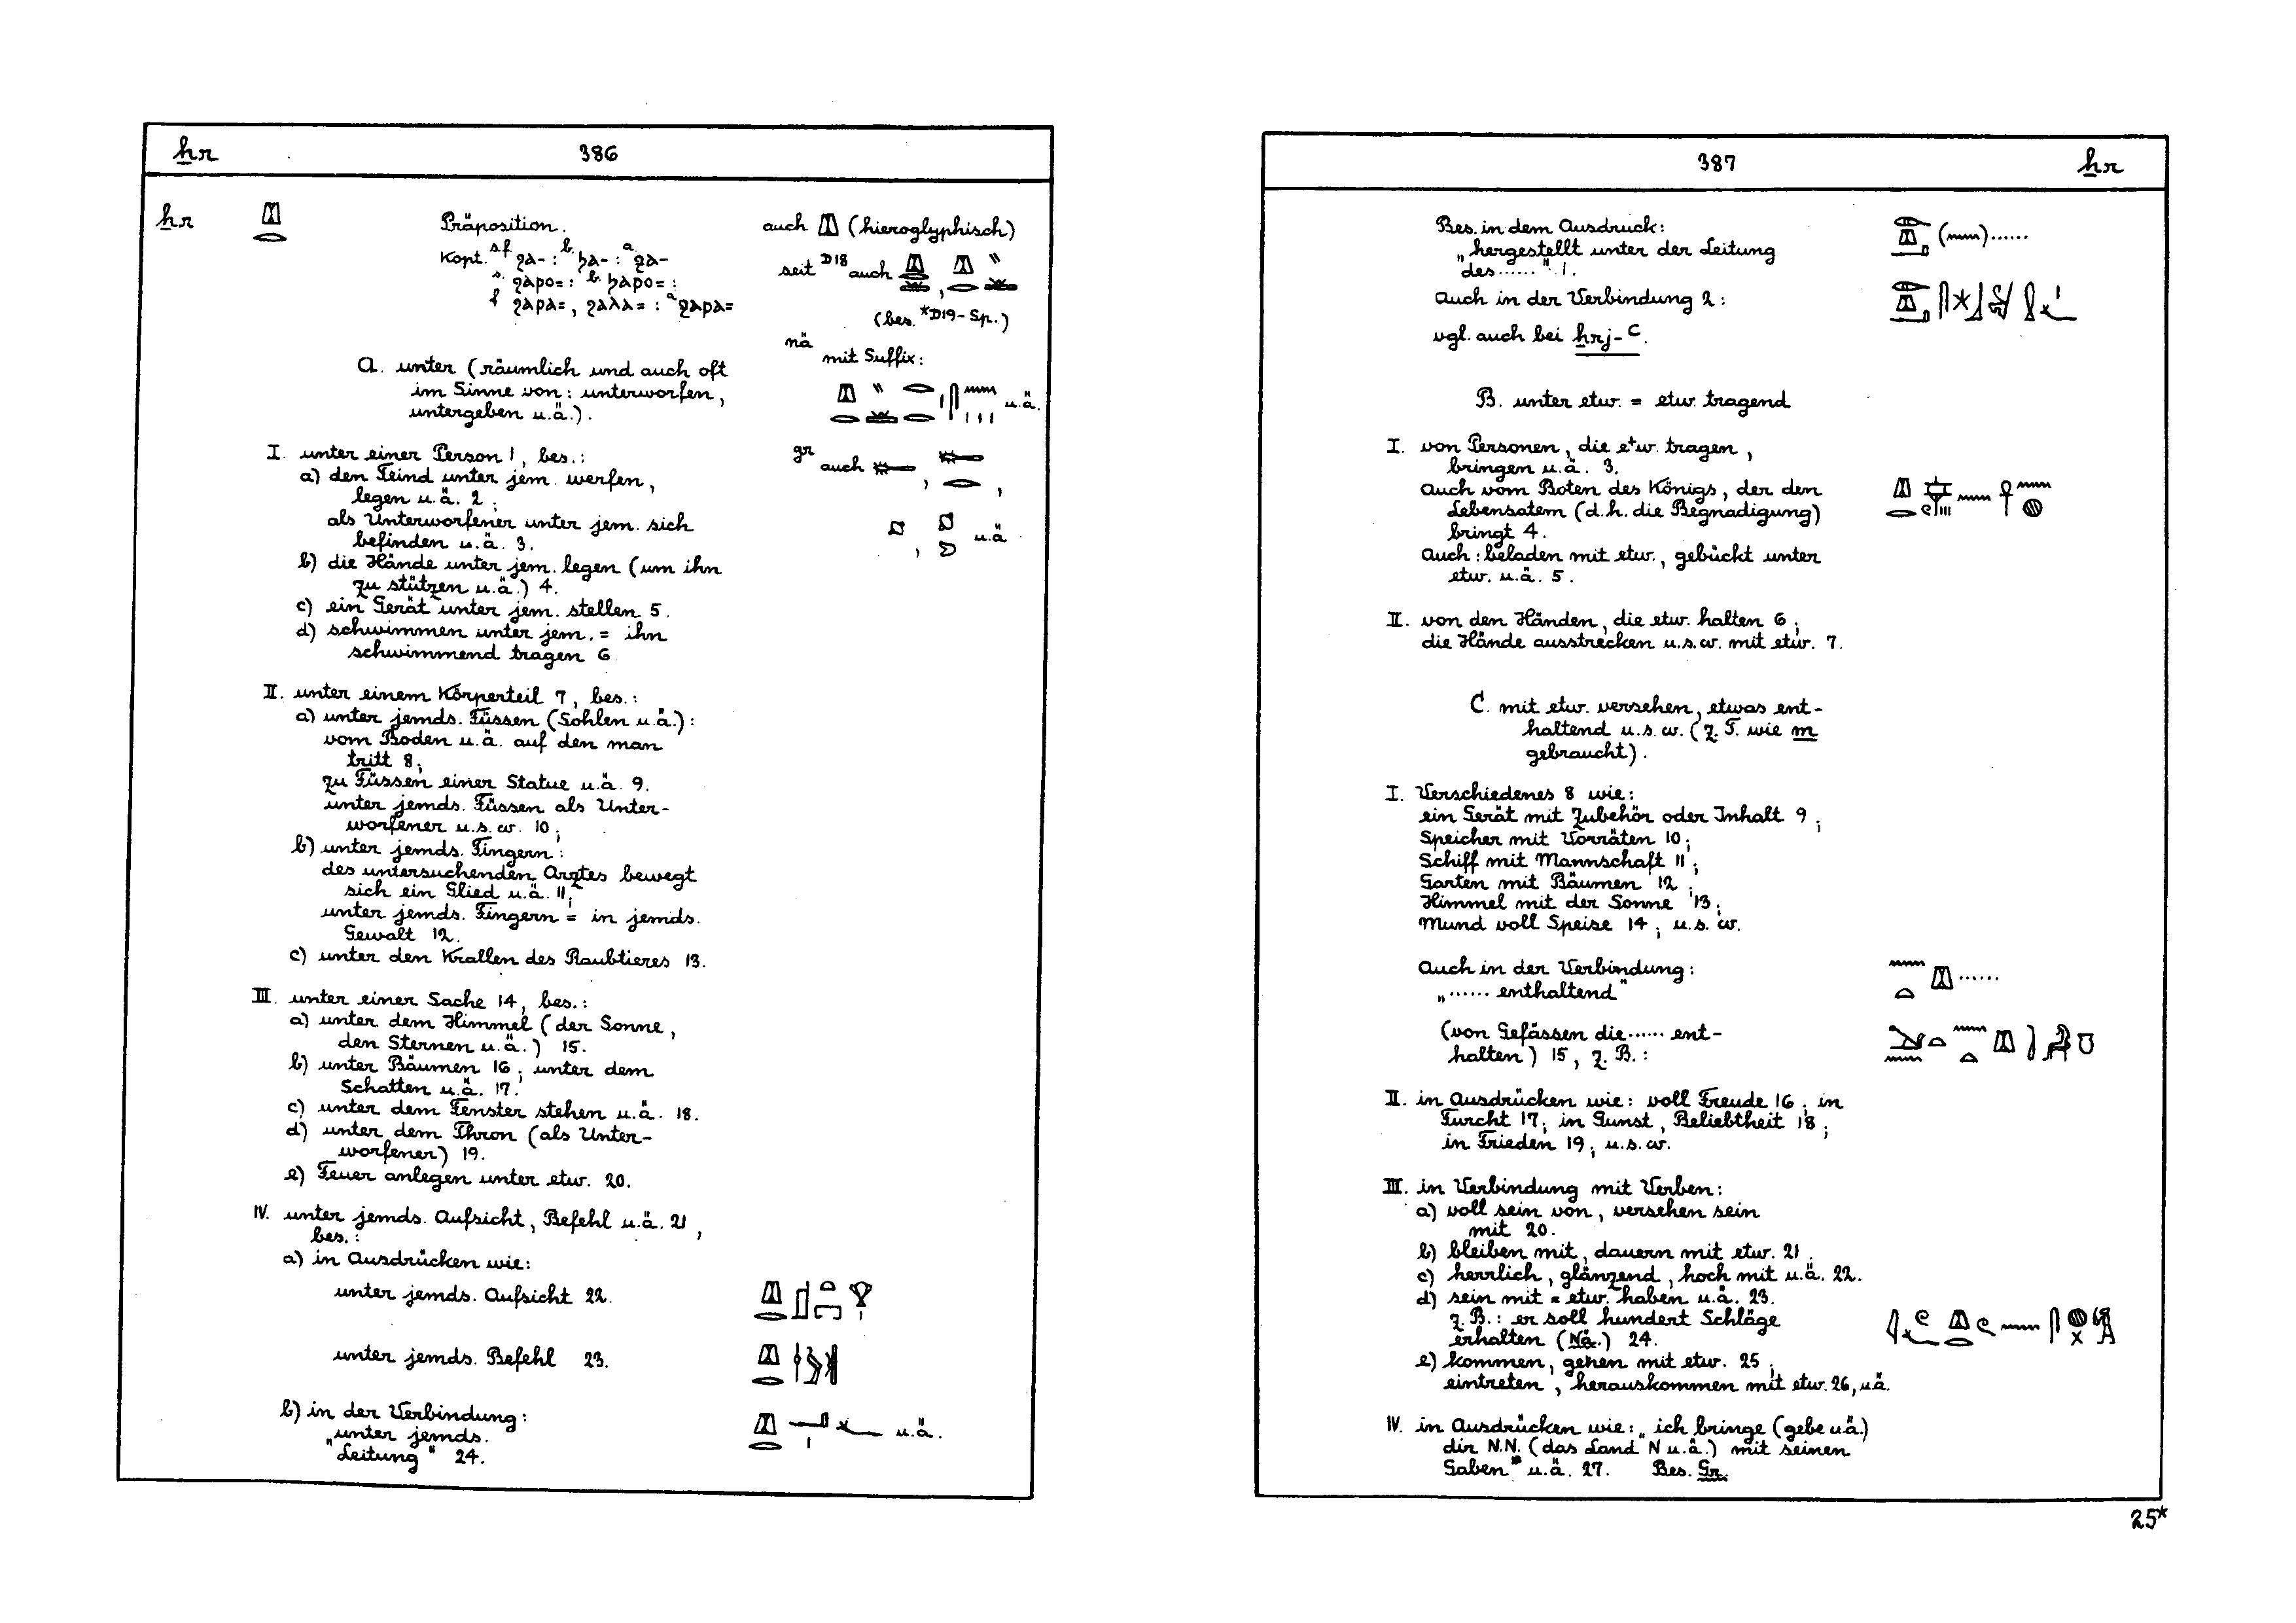 ẖr 386
ẖr
Präposition.
Kopt. s.f ϩⲁ- : b. ϧⲁ- : a ⳉⲁ-
s. ϩⲁⲣⲟ= : b. ϧⲁⲣⲟ= :
f ϩⲁⲣⲁ=, ϩⲁⲗⲁ= : a ⳉⲁⲣⲁ=
auch (hieroglyphisch)
seit D18 auch ,
(bes. *D19 - Sp.)
nä mit Suffix:
u.ä.
gr auch , ,
, u.ä
A. unter (räumlich und auch oft
im Sinne von: unterworfen,
untergeben u.ä.).
I. unter einer Person 1, bes.:
a) den Feind unter jem. werfen,
legen u.ä. 2;
als Unterworfener unter jem. sich
befinden u.ä. 3.
b) die Hände unter jem. legen (um ihn
zu stützen u.ä.) 4.
c) ein Gerät unter jem. stellen 5.
d) schwimmen unter jem. = ihn
schwimmend tragen 6
II. unter einem Körperteil 7, bes.:
a) unter jemds. Füssen (Sohlen u.ä.):
vom Boden u.ä. auf den man
tritt 8;
zu Füssen einer Statue u.ä. 9.
unter jemds. Füssen als Unter-
worfener u.s.w. 10;
b) unter jemds. Fingern:
des untersuchenden Arztes bewegt
sich ein Glied u.ä. 11;
unter jemds. Fingern = in jemds.
Gewalt 12.
c) unter den Krallen des Raubtieres 13.
III. unter einer Sache 14, bes.:
a) unter dem Himmel (der Sonne,
den Sternen u.ä.) 15.
b) unter Bäumen 16; unter dem
Schatten u.ä. 17.
c) unter dem Fenster stehen u.ä. 18.
d) unter dem Thron (als Unter-
worfener) 19.
e) Feuer anlegen unter etw. 20.
IV. unter jemds. Aufsicht, Befehl u.ä. 21,
bes.:
a) in Ausdrücken wie:
unter jemds. Aufsicht 22.
unter jemds. Befehl 23.
b) in der Verbindung:
„unter jemds.
Leitung" 24.
u.ä.
387 ẖr
Bes. in dem Ausdruck:
„hergestellt unter der Leitung
des ......" 1.
( ) ......
Auch in der Verbindung 2:
vgl. auch bei ẖrj-ꜥ.
B. unter etw. = etw. tragend
I. von Personen, die etw. tragen,
bringen u.ä. 3.
Auch vom Boten des Königs, der den
Lebensatem (d.h. die Begnadigung)
bringt 4.
Auch: beladen mit etw., gebückt unter
etw. u.ä. 5.
II. von den Händen, die etw. halten 6;
die Hände ausstrecken u.s.w. mit etw. 7.
C. mit etw. versehen, etwas ent-
haltend u.s.w. (z.T. wie m
gebraucht).
I. Verschiedenes 8 wie:
ein Gerät mit Zubehör oder Inhalt 9;
Speicher mit Vorräten 10;
Schiff mit Mannschaft 11;
Garten mit Bäumen 12;
Himmel mit der Sonne 13;
Mund voll Speise 14; u.s.w.
Auch in der Verbindung:
„...... enthaltend"
......
(von Gefässen die ...... ent-
halten) 15, z.B.:
II. in Ausdrücken wie: voll Freude 16; in
Furcht 17; in Gunst, Beliebtheit 18;
in Frieden 19; u.s.w.
III. in Verbindung mit Verben:
a) voll sein von, versehen sein
mit 20.
b) bleiben mit, dauern mit etw. 21.
c) herrlich, glänzend, hoch mit u.ä. 22.
d) sein mit = etw. haben u.ä. 23.
z.B.: er soll hundert Schläge
erhalten (Nä.) 24.
e) kommen, gehen mit etw. 25;
eintreten, herauskommen mit etw. 26, u.ä.
IV. in Ausdrücken wie: „ich bringe (gebe u.ä.)
dir N.N. (das Land N u.ä.) mit seinen
Gaben" u.ä. 27. Bes. Gr.
25*